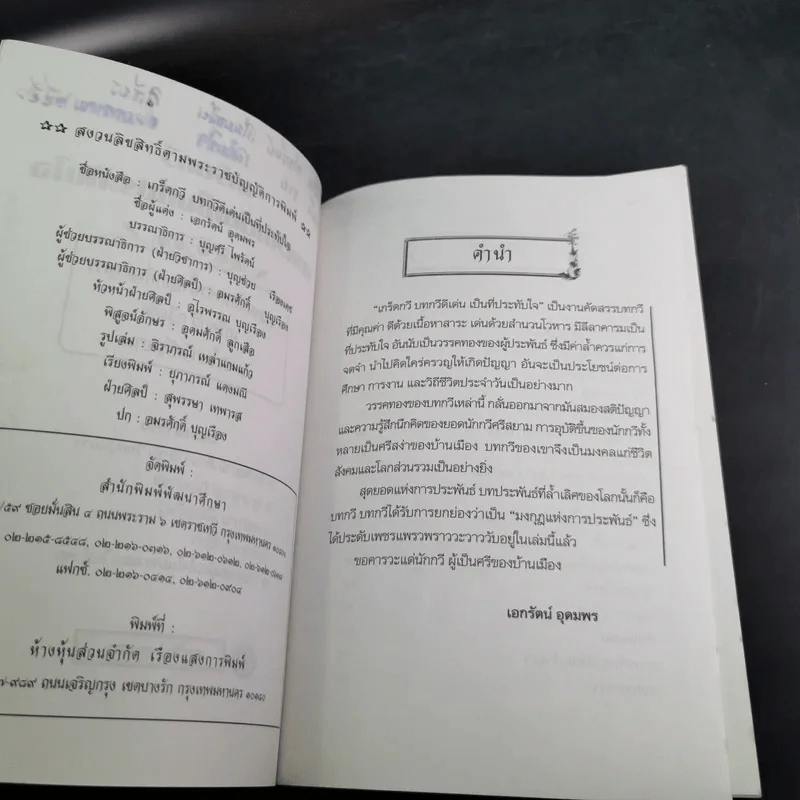 ☆☆ สงวนลิขสิทธิ์ตามพระราชบัญญัติการพิมพ์ ☆☆
ชื่อหนังสือ : เกร็ดกวี บทกวีดีเด่นเป็นที่ประทับใจ
ชื่อผู้แต่ง : เอกรัตน์ อุดมพร
บรรณาธิการ : บุญศรี ไพรัตน์
ผู้ช่วยบรรณาธิการ (ฝ่ายวิชาการ) : บุญช่วย เรืองเดช
ผู้ช่วยบรรณาธิการ (ฝ่ายศิลป์) : อมรศักดิ์ บุญเรือง
หัวหน้าฝ่ายศิลป์ : อุไรพรรณ บุญเรือง
พิสูจน์อักษร : อุดมศักดิ์ ลูกเสือ
รูปเล่ม : จิราภรณ์ เหล่าแกมแก้ว
เรียงพิมพ์ : ยุภาภรณ์ แดงมณี
ฝ่ายศิลป์ : สุพรรษา เทพารส
ปก : อมรศักดิ์ บุญเรือง
จัดพิมพ์ :
สำนักพิมพ์พัฒนาศึกษา
/๕๙ ซอยมั่นสิน ๔ ถนนพระราม ๖ เขตราชเทวี กรุงเทพมหานคร ๑๐๔๐๐
๐๒-๒๑๕-๘๕๔๘, ๐๒-๒๑๖-๐๓๑๖, ๐๒-๖๑๒-๐๖๑๒,
แฟกซ์. ๐๒-๒๑๖-๐๔๑๔, ๐๒-๖๑๒-๐๙๐๔
พิมพ์ที่ :
ห้างหุ้นส่วนจำกัด เรืองแสงการพิมพ์
๗-๙๘๙ ถนนเจริญกรุง เขตบางรัก กรุงเทพมหานคร
คำนำ
"เกร็ดกวี บทกวีดีเด่น เป็นที่ประทับใจ" เป็นงานคัดสรรบทกวี
ที่มีคุณค่า ดีด้วยเนื้อหาสาระ เด่นด้วยสำนวนโวหาร มีลีลาคารมเป็น
ที่ประทับใจ อันนับเป็นวรรคทองของผู้ประพันธ์ ซึ่งมีค่าล้ำควรแก่การ
จดจำ นำไปคิดใคร่ครวญให้เกิดปัญญา อันจะเป็นประโยชน์ต่อการ
ศึกษา การงาน และวิถีชีวิตประจำวันเป็นอย่างมาก
วรรคทองของบทกวีเหล่านี้ กลั่นออกมาจากมันสมองสติปัญญา
และความรู้สึกนึกคิดของยอดนักกวีศรีสยาม การอุบัติขึ้นของนักกวีทั้ง
หลายเป็นศรีสง่าของบ้านเมือง บทกวีของเขาจึงเป็นมงคลแก่ชีวิต
สังคมและโลกส่วนรวมเป็นอย่างยิ่ง
สุดยอดแห่งการประพันธ์ บทประพันธ์ที่ล้ำเลิศของโลกนั้นก็คือ
บทกวี บทกวีได้รับการยกย่องว่าเป็น "มงกุฎแห่งการประพันธ์" ซึ่ง
ได้ประดับเพชรแพรวพราววะวาววับอยู่ในเล่มนี้แล้ว
ขอคารวะแด่นักกวี ผู้เป็นศรีของบ้านเมือง
เอกรัตน์ อุดมพร